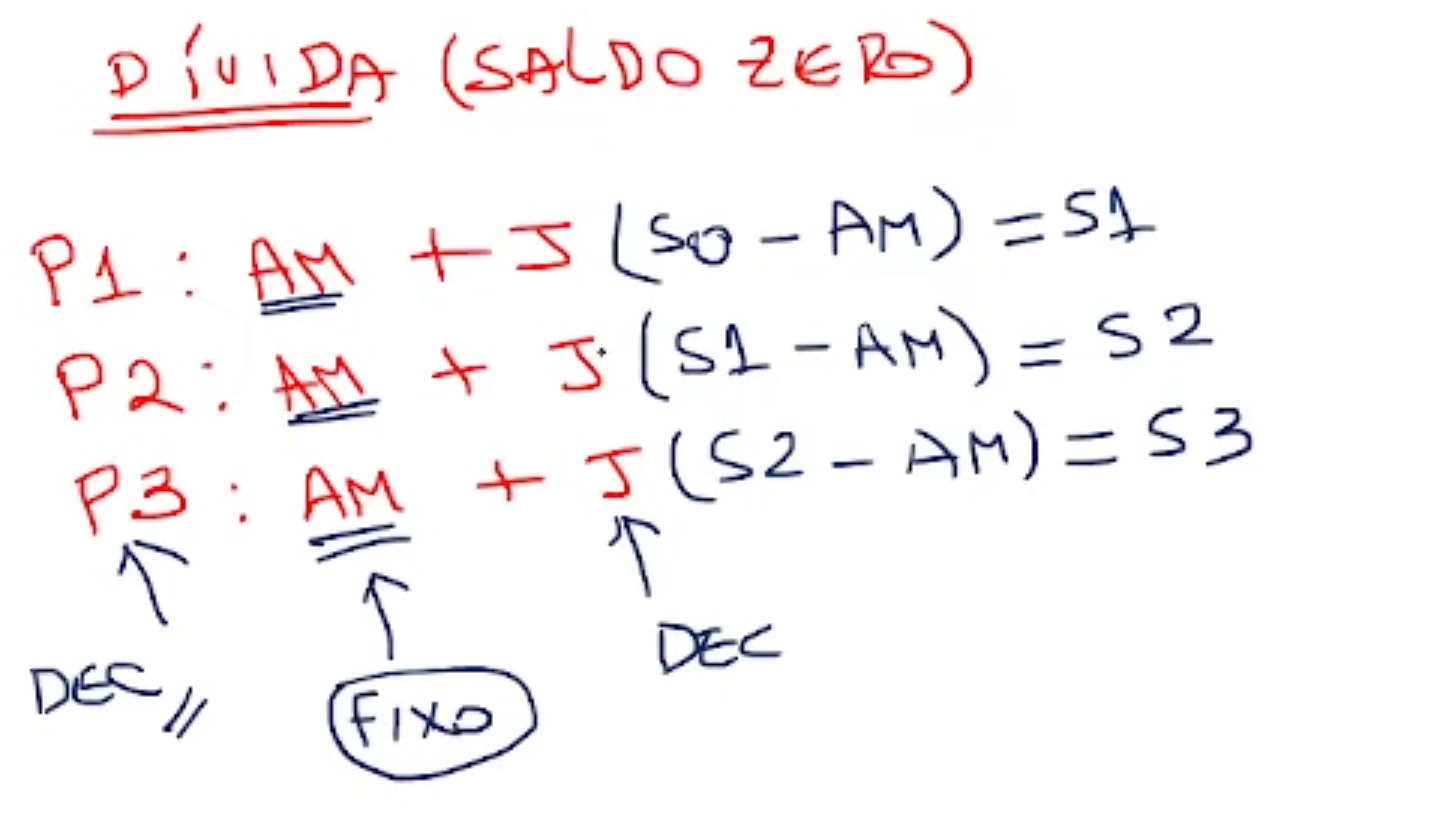 DÍVIDA (SALDO ZERO)
P1: AM + J (S0 - AM) = S1
P2: AM + J (S1 - AM) = S2
P3: AM + J (S2 - AM) = S3
DEC
FIXO
DEC